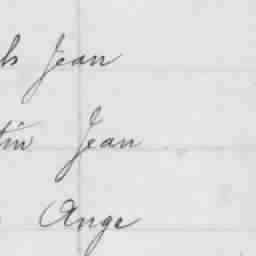 ls Jean
tin Jean
Ange